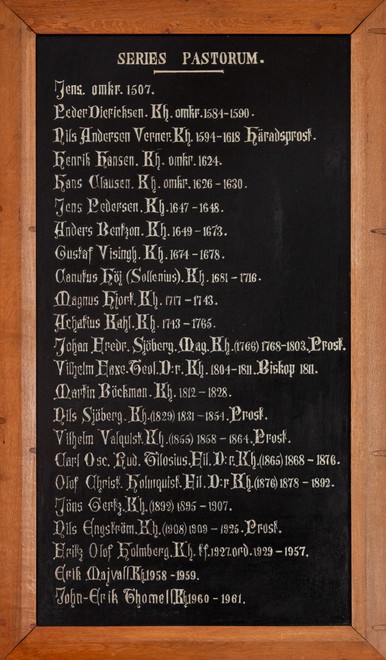 SERIES PASTORUM.
Jens. omkr. 1507.
Peder Diericksen. Kh. omkr. 1584-1590.
Nils Andersen Verner. Kh. 1594-1618 Häradsprost.
Henrik Hansen. Kh. omkr. 1624.
Hans Clausen. Kh. omkr. 1626-1630.
Jens Pedersen. Kh. 1647-1648.
Anders Bentzon. Kh. 1649-1673.
Gustaf Visingh. Kh. 1674-1678.
Canutus Höj (Sollenius). Kh. 1681-1716.
Magnus Hjort. Kh. 1717-1743.
Achatius Kahl. Kh. 1743-1765.
Johan Fredr. Sjöberg. Mag. Kh. (1766) 1768-1803. Prost.
Vilhelm Faxe. Teol. D:r. Kh. 1804-1811. Biskop 1811.
Martin Böckman. Kh. 1812-1828.
Nils Sjöberg. Kh. (1829) 1831-1854. Prost.
Vilhelm Valquist. Kh. (1855) 1858-1864. Prost.
Carl Osc. Rud. Gilosius. Fil. D:r. Kh. (1865) 1868-1876.
Olof Christ. Holmquist. Fil. D:r. Kh. (1876) 1878-1892.
Jöns Gertz. Kh. (1892) 1895-1907.
Nils Engström. Kh. (1908) 1909-1925. Prost.
Fritz Olof Holmberg. Kh. tf. 1927. ord. 1929-1957.
Erik Majvall Kh. 1958-1959.
John-Erik Thomell Kh. 1960-1961.